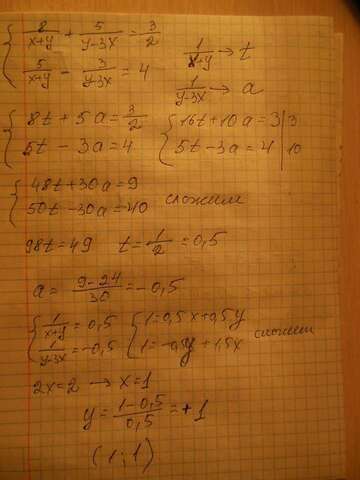 { 8/(x+y) + 5/(y-3x) = 3/2    1/(x+y) → t
{ 5/(x+y) - 3/(y-3x) = 4    1/(y-3x) → a
{ 8t + 5a = 3/2    { 16t + 10a = 3 | 3
{ 5t - 3a = 4    { 5t - 3a = 4 | 10
{ 48t + 30a = 9
{ 50t - 30a = 40    сложим
98t = 49    t = 1/2 = 0,5
a = (9-24)/30 = -0,5
{ 1/(x+y) = 0,5    { 1 = 0,5x + 0,5y
{ 1/(y-3x) = -0,5    { 1 = -0,5y + 1,5x    сложим
2x = 2 → x = 1
y = (1-0,5)/0,5 = +1
(1; 1)